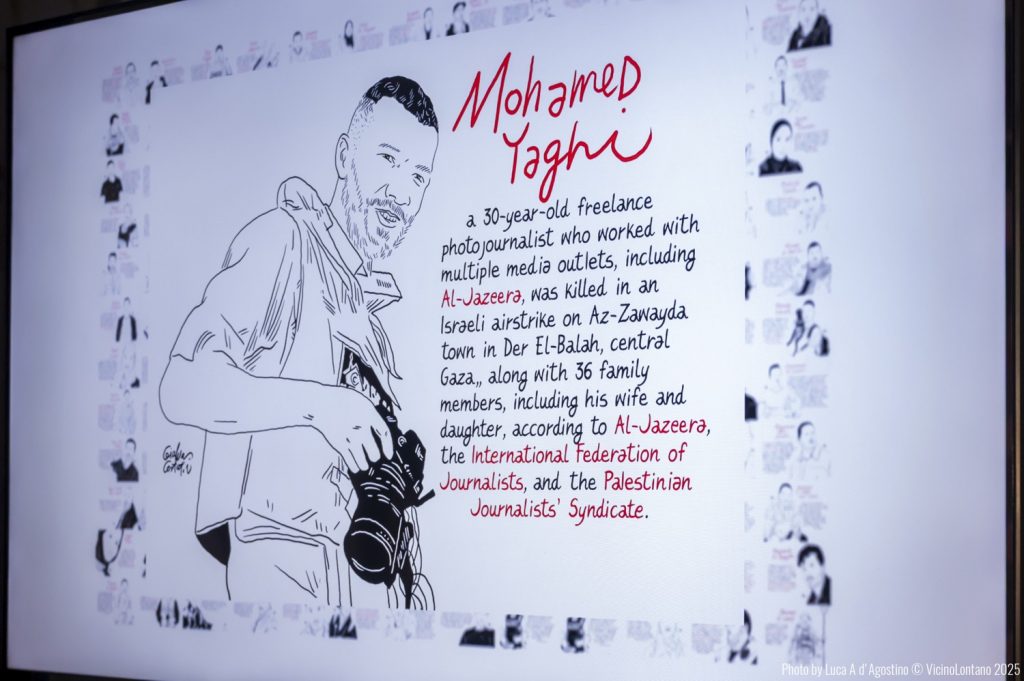 Mohamed
Yaghi
a 30-year-old freelance
photojournalist who worked with
multiple media outlets, including
Al-Jazeera, was killed in an
Israeli airstrike on Az-Zawayda
town in Der El-Balah, central
Gaza,, along with 36 family
members, including his wife and
daughter, according to Al-Jazeera,
the International Federation of
Journalists, and the Palestinian
Journalists' Syndicate.
Photo by Luca A d'Agostino © VicinoLontano 2025